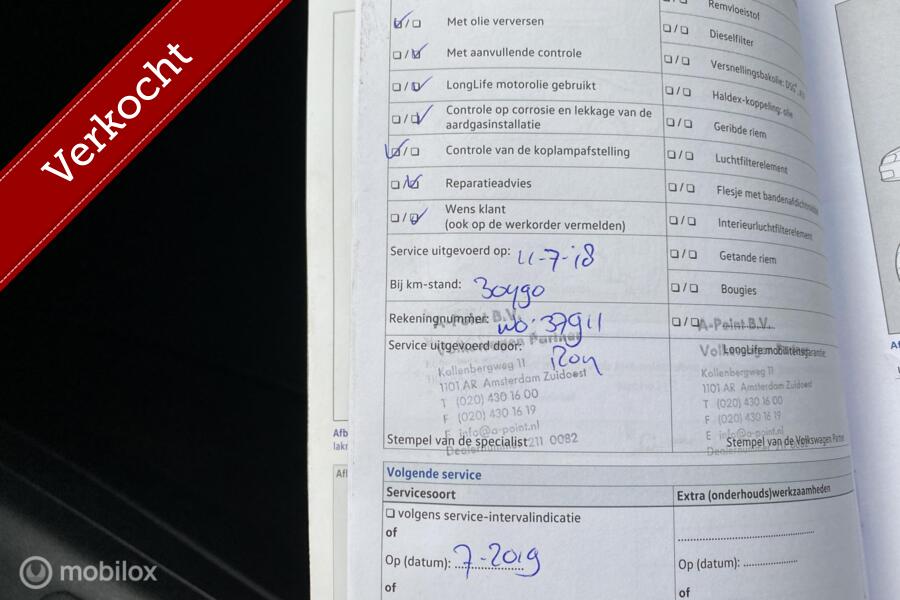 Verkocht
Met olie verversen
Met aanvullende controle
LongLife motorolie gebruikt
Controle op corrosie en lekkage van de
aardgasinstallatie
Controle van de koplampafstelling
Reparatieadvies
Wens klant
(ook op de werkorder vermelden)
Service uitgevoerd op: 11-7-18
Bij km-stand:
Rekeningnummer: wo. 37911
A-Point B.V.
Service uitgevoerd door: Ron
Kollenbergweg 11
1101 AR Amsterdam Zuidoost
T (020) 430 16 00
F (020) 430 16 19
E info@a-point.nl
Stempel van de specialist
Dealernummer 211 0082
Remvloeistof
Dieselfilter
Versnellingsbakolie: DSG
Haldex-koppeling: olie
Geribde riem
Luchtfilterelement
Flesje met bandenafdichtmiddel
Interieurluchtfilterelement
Getande riem
Bougies
A-Point B.V.
LongLife mobiliteitsgarantie
Kollenbergweg 11
1101 AR Amsterdam Zuidoost
T (020) 430 16 00
F (020) 430 16 19
E info@a-point.nl
Stempel van de Volkswagen Partner
Volgende service
Servicesoort
Extra (onderhouds)werkzaamheden
volgens service-intervalindicatie
of
Op (datum): 7-2019
of
Op (datum):
of
Afb
lakr
mobilox